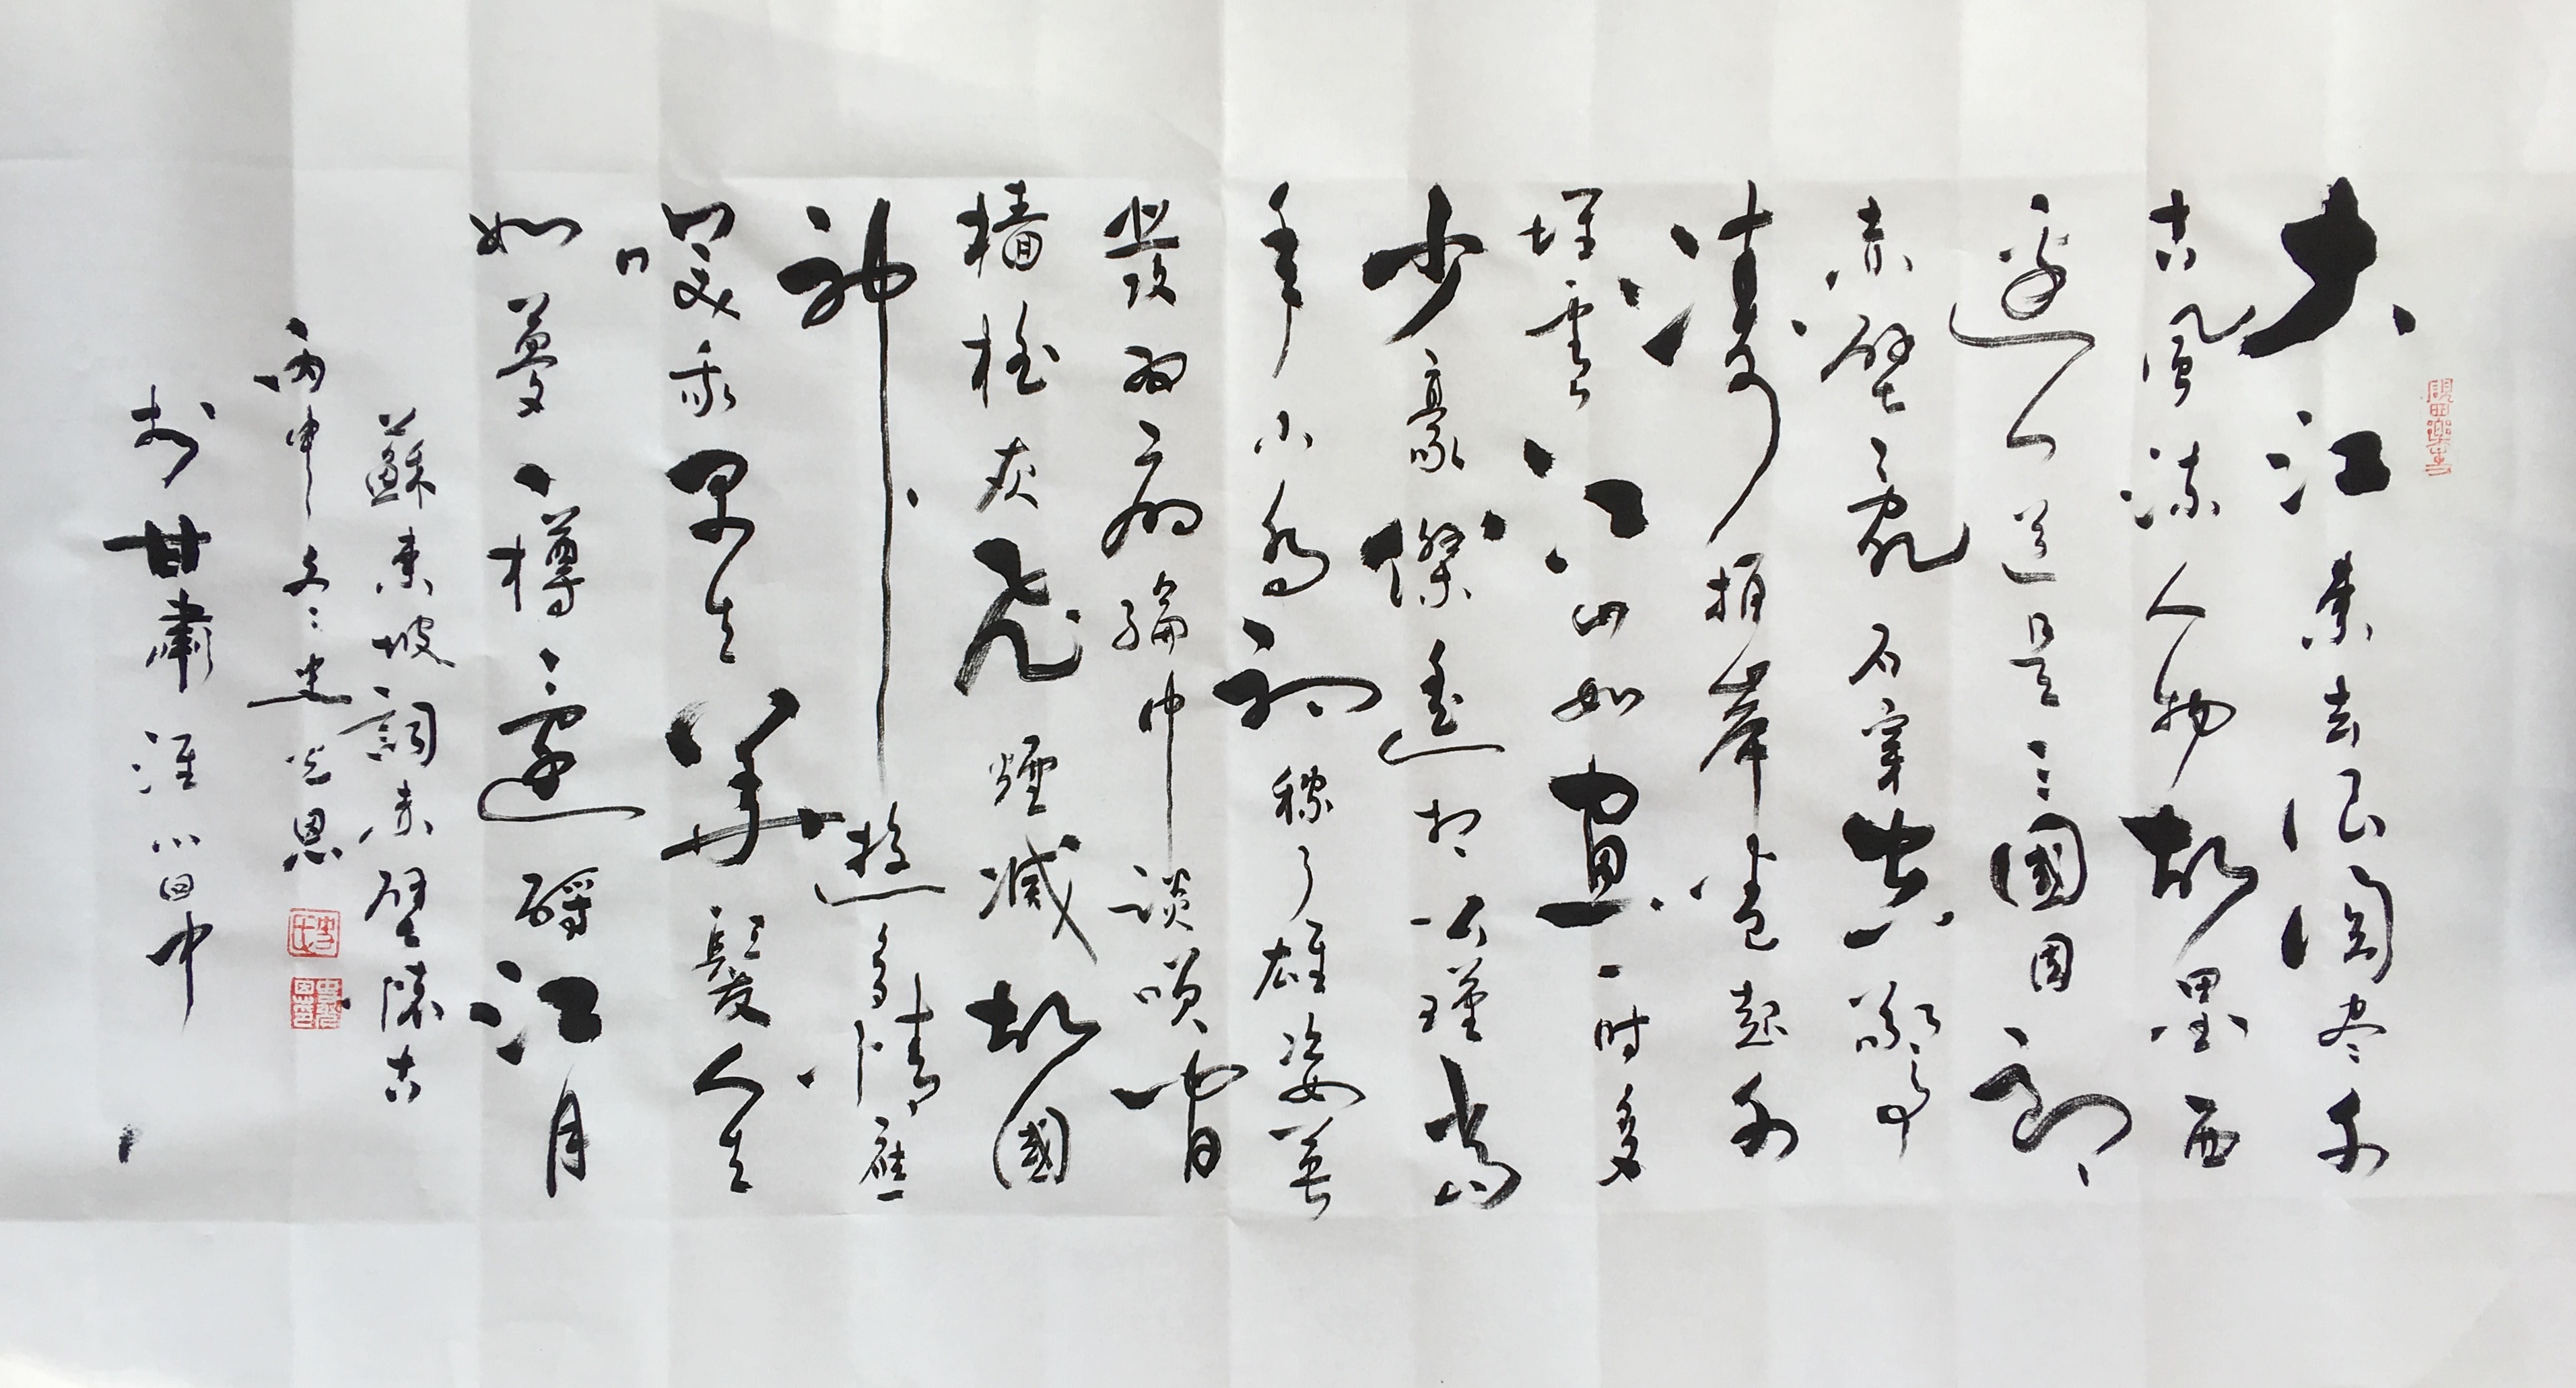 大江東去浪淘尽千
古風流人物故壘西
邊人道是三國周郎
赤壁亂石穿空驚濤
拍岸卷起千
堆雪江山如畫一時多
少豪傑遙想公瑾當
年小喬初嫁了雄姿英
發羽扇綸巾談笑間
檣櫓灰飛煙滅故國
神遊多情應
笑我早生華髮人生
如夢一樽還酹江月
蘇東坡詞赤壁懷古
丙申冬
於甘肅